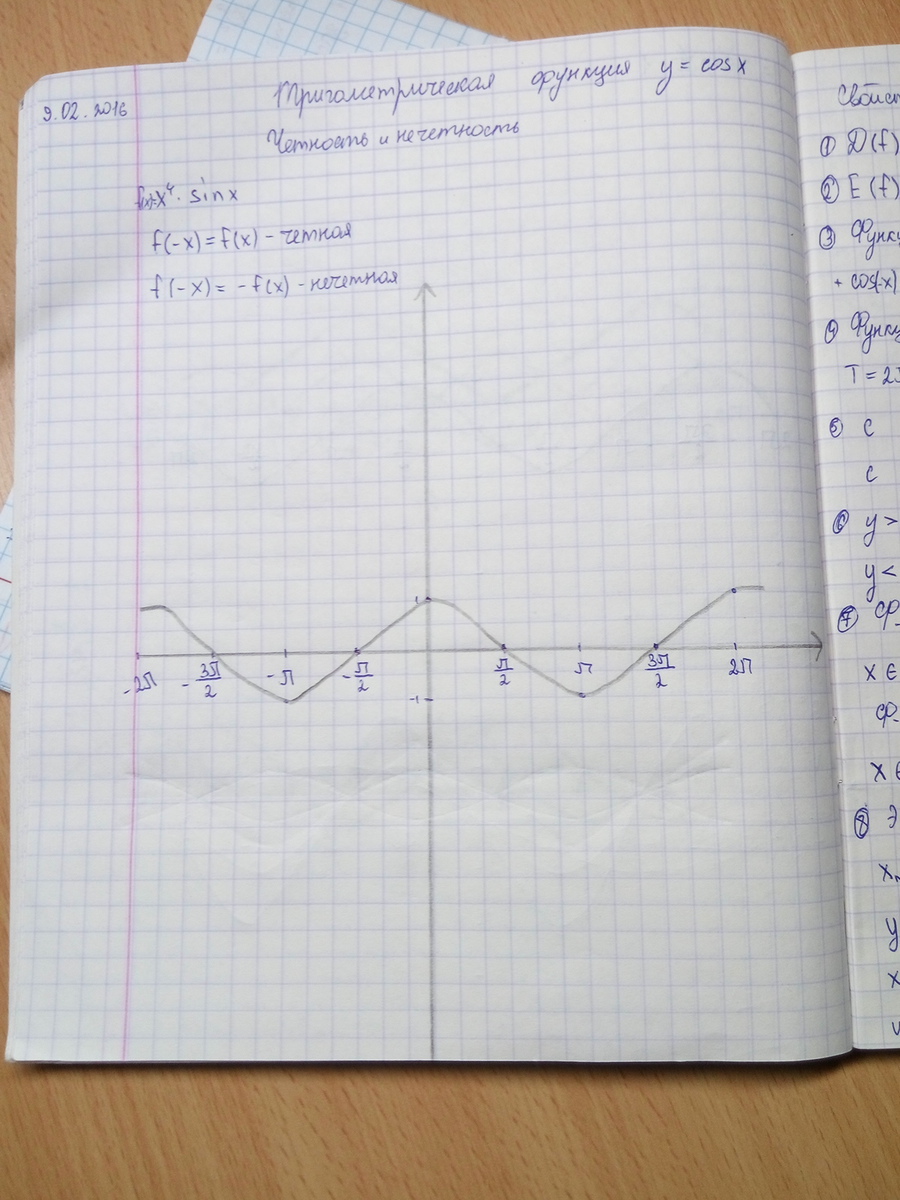 9.02.2016
Тригометрическая функция y = cosx
Четность и нечетность
f(x)=x⁴ · sinx
f(-x) = f(x) - четная
f(-x) = -f(x) - нечетная
1
-2π -3π/2 -π -π/2 π/2 π 3π/2 2π
-1
① D(f)
② E(f)
③
+ cos(-x)
④
T = 2
⑤ c
c
⑥ y >
y <
⑦
x ∈
x ∈
⑧
y
x